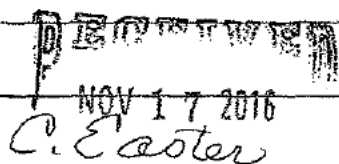 RECEIVED
NOV 17 2016
C. Easter